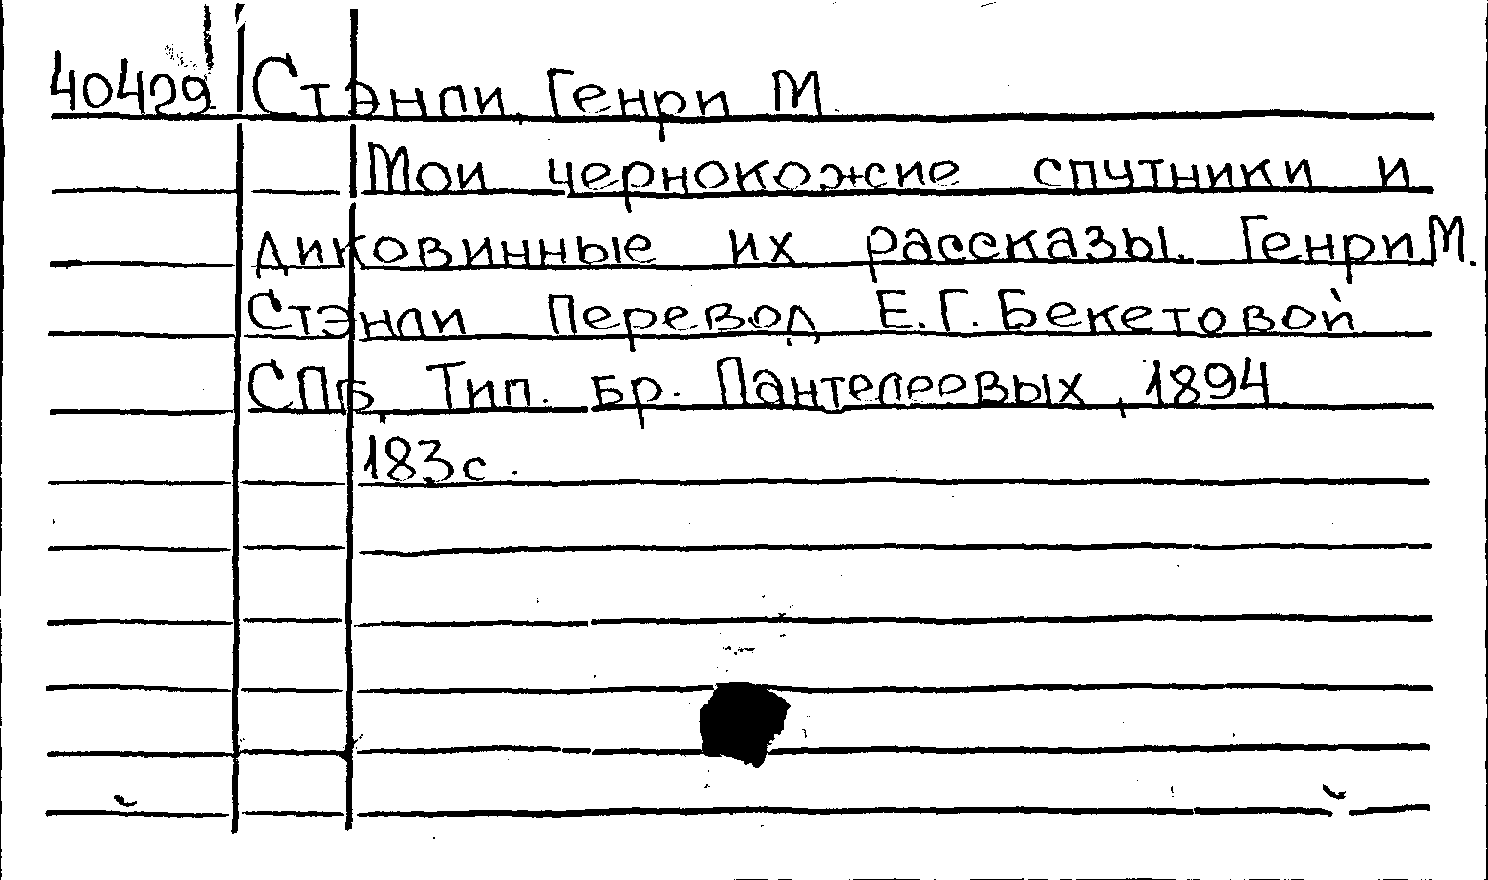 40429 Стэнли, Генри М.
Мои чернокожие спутники и
диковинные их рассказы. Генри М.
Стэнли Перевод Е.Г. Бекетовой
СПб, Тип. бр. Пантелеевых, 1894
183с.